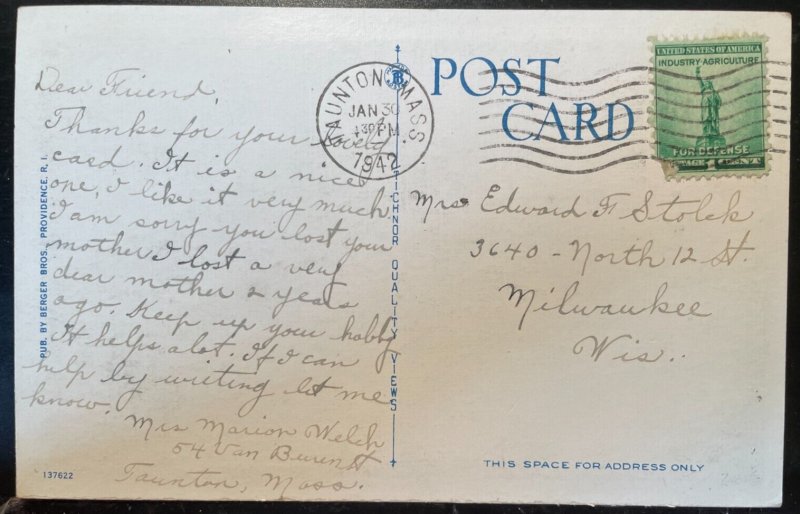 Dear Friend,
Thanks for your lovely
card. It is a nice
one, I like it very much.
I am sorry you lost your
mother I lost a very
dear mother 2 years
ago. Keep up your hobby
It helps alot. If I can
help by writing let me
know.
Mrs Marion Welch
54 Van Buren St
Taunton, Mass.
PUB. BY BERGER BROS., PROVIDENCE, R. I.
137622
TICHNOR QUALITY VIEWS
TAUNTON, MASS.
JAN 30
430 PM
1942
POST
CARD
UNITED STATES OF AMERICA
INDUSTRY-AGRICULTURE
FOR DEFENSE
Mrs Edward F Stolck
3640 - North 12 St.
Milwaukee
Wis.
THIS SPACE FOR ADDRESS ONLY